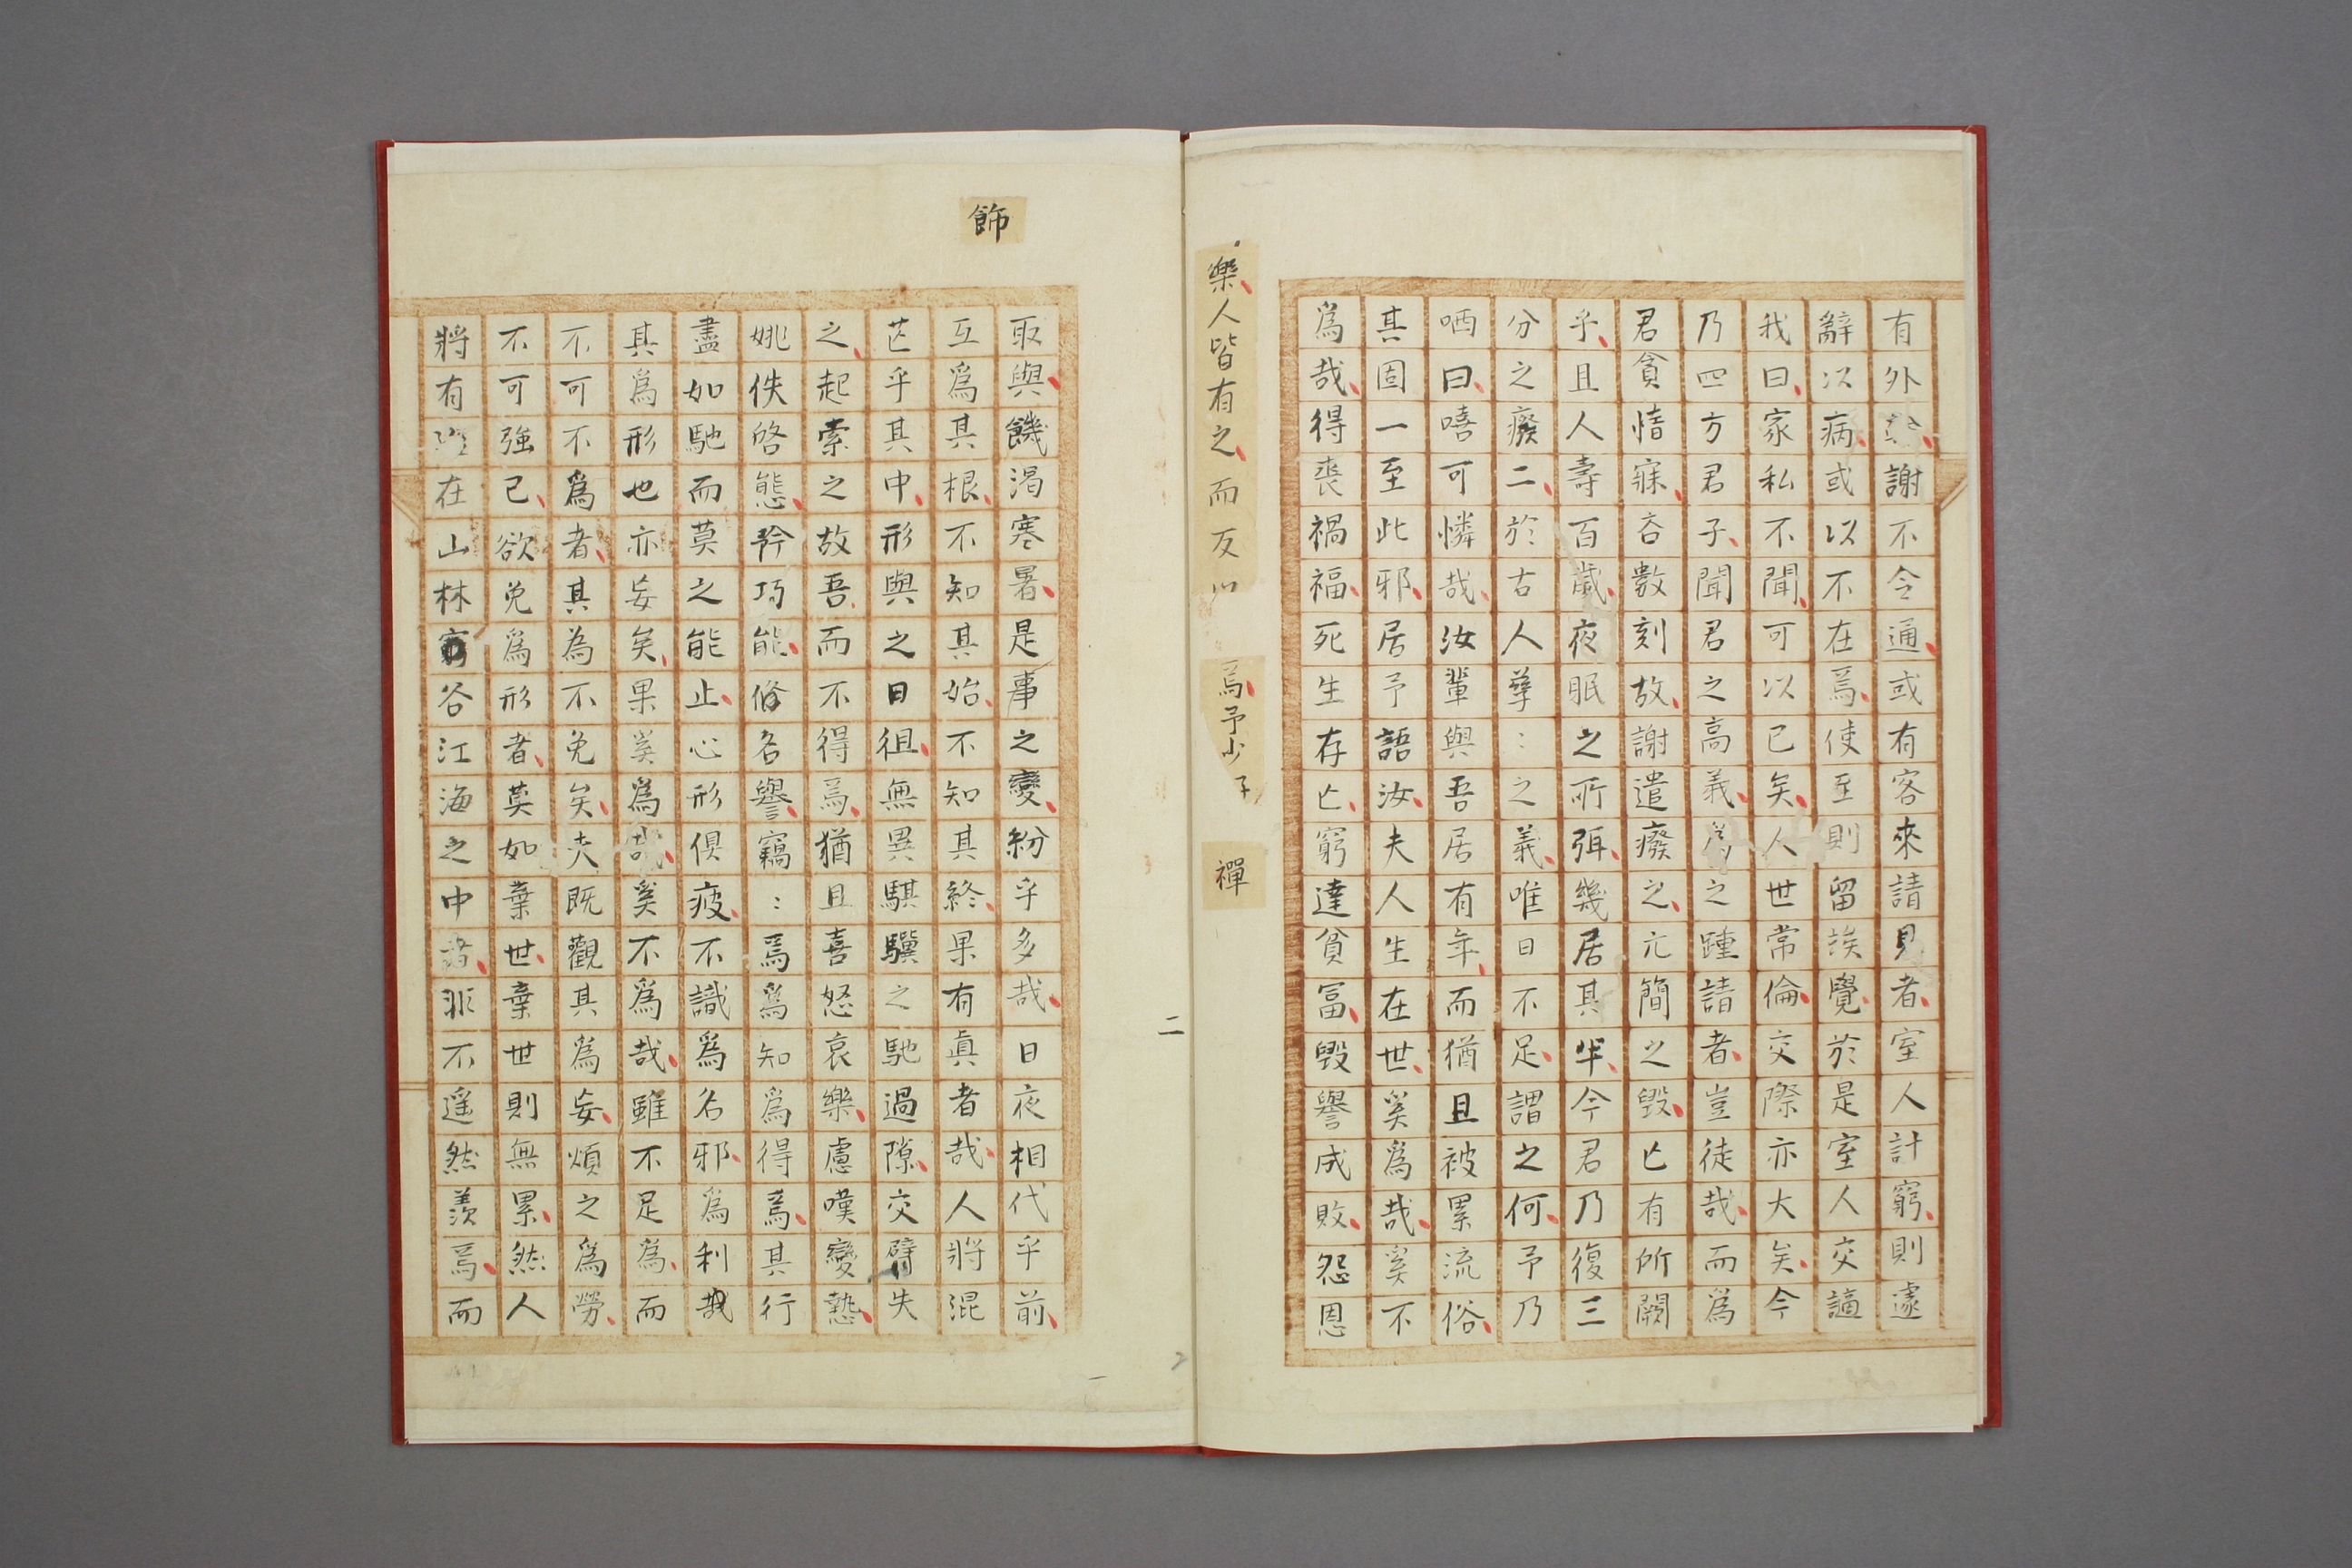 有外謝不令通或有客來請見者室人計窮則遽
辭以病或以不在焉使至則留談覺於是室人交謫
我曰家私不聞可以已矣人世常倫交際亦大矣今
乃四方君子聞君之高義為之踵請者豈徒哉而爲
君貪惰寐吝數刻故謝遣癈之亢簡之毀亡有所闕
乎且人壽百歲夜眠之所弭幾居其半今君乃復三
分之癈二於古人孳〻之義唯日不足謂之何予乃
哂曰嘻可憐哉汝輩與吾居有年而猶且被累流俗
其固一至此邪居予語汝夫人生在世奚爲哉奚不
爲哉得喪禍福死生存亡窮達貧冨毀譽成敗怨恩
樂人皆有之而反
焉予少子
禪
二
飾
取與饑渴寒暑是事之變紛乎多哉日夜相代乎前
互爲其根不知其始不知其終果有眞者哉人將混
芒乎其中形與之日徂無異騏驥之馳過隙交臂失
之起索之故吾而不得焉猶且喜怒哀樂慮嘆變慹
姚佚啓態矜巧能脩名譽竊〻焉爲知爲得焉其行
盡如馳而莫之能止心形俱疲不識爲名邪爲利哉
其爲形也亦妄矣果奚爲哉奚不爲哉雖不足爲而
不可不爲者其為不免矣夫既觀其爲妄煩之爲勞
不可強已欲免爲形者莫如棄世棄世則無累然人
將有在山林谷江海之中者非不遥然羨焉而